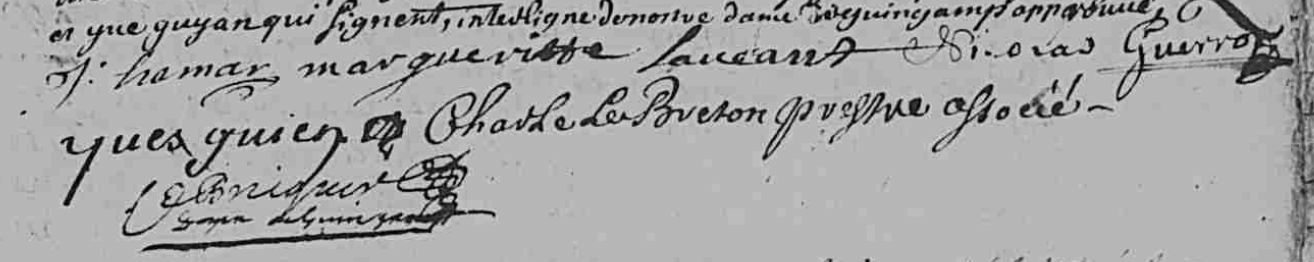 et yue guyan qui signent, interligne de nostre dame de guingamp approuvué
J: hamar margueritte Laueant Nicolas Guerro
yues guien Charle Le Breton prestre associé -